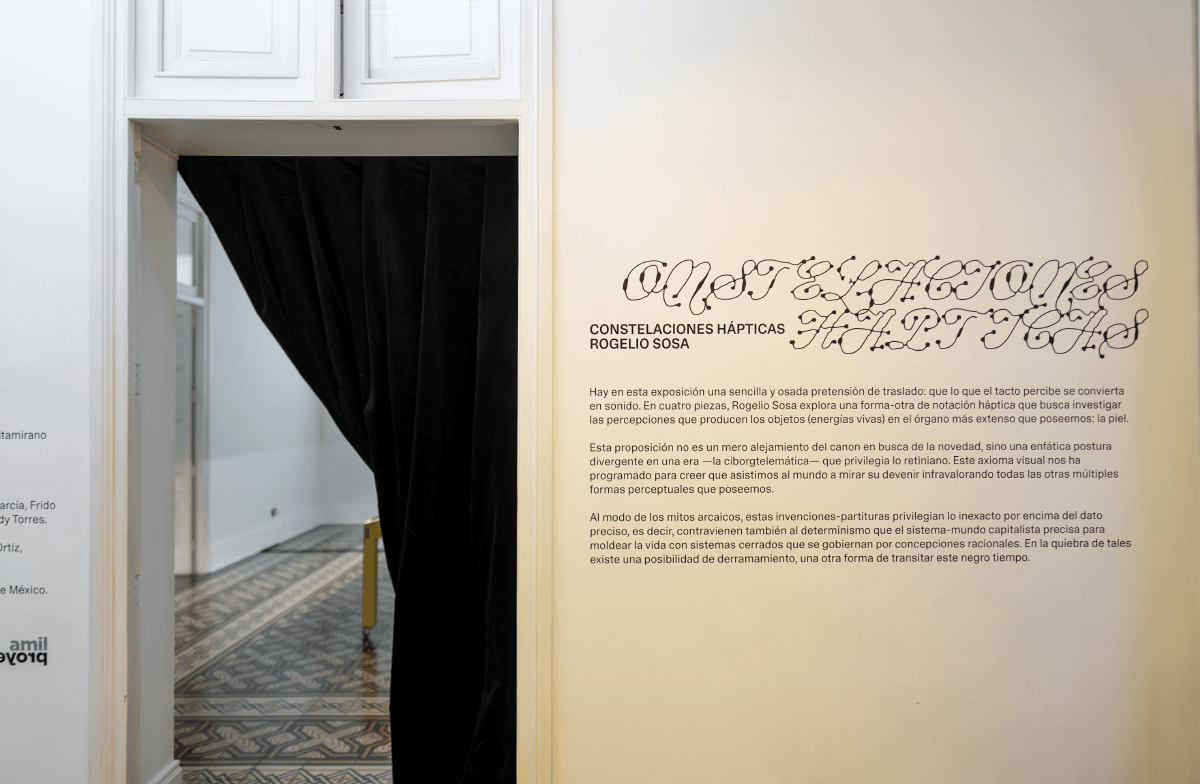 ltamirano
arcía, Frido
dy Torres.
Ortíz,
e México.
amil
proye
ONSTELACIONES
HAPTICAS
CONSTELACIONES HÁPTICAS
ROGELIO SOSA
Hay en esta exposición una sencilla y osada pretensión de traslado: que lo que el tacto percibe se convierta
en sonido. En cuatro piezas, Rogelio Sosa explora una forma-otra de notación háptica que busca investigar
las percepciones que producen los objetos (energías vivas) en el órgano más extenso que poseemos: la piel.
Esta proposición no es un mero alejamiento del canon en busca de la novedad, sino una enfática postura
divergente en una era —la ciborgtelemática— que privilegia lo retiniano. Este axioma visual nos ha
programado para creer que asistimos al mundo a mirar su devenir infravalorando todas las otras múltiples
formas perceptuales que poseemos.
Al modo de los mitos arcaicos, estas invenciones-partituras privilegian lo inexacto por encima del dato
preciso, es decir, contravienen también al determinismo que el sistema-mundo capitalista precisa para
moldear la vida con sistemas cerrados que se gobiernan por concepciones racionales. En la quiebra de tales
existe una posibilidad de derramamiento, una otra forma de transitar este negro tiempo.